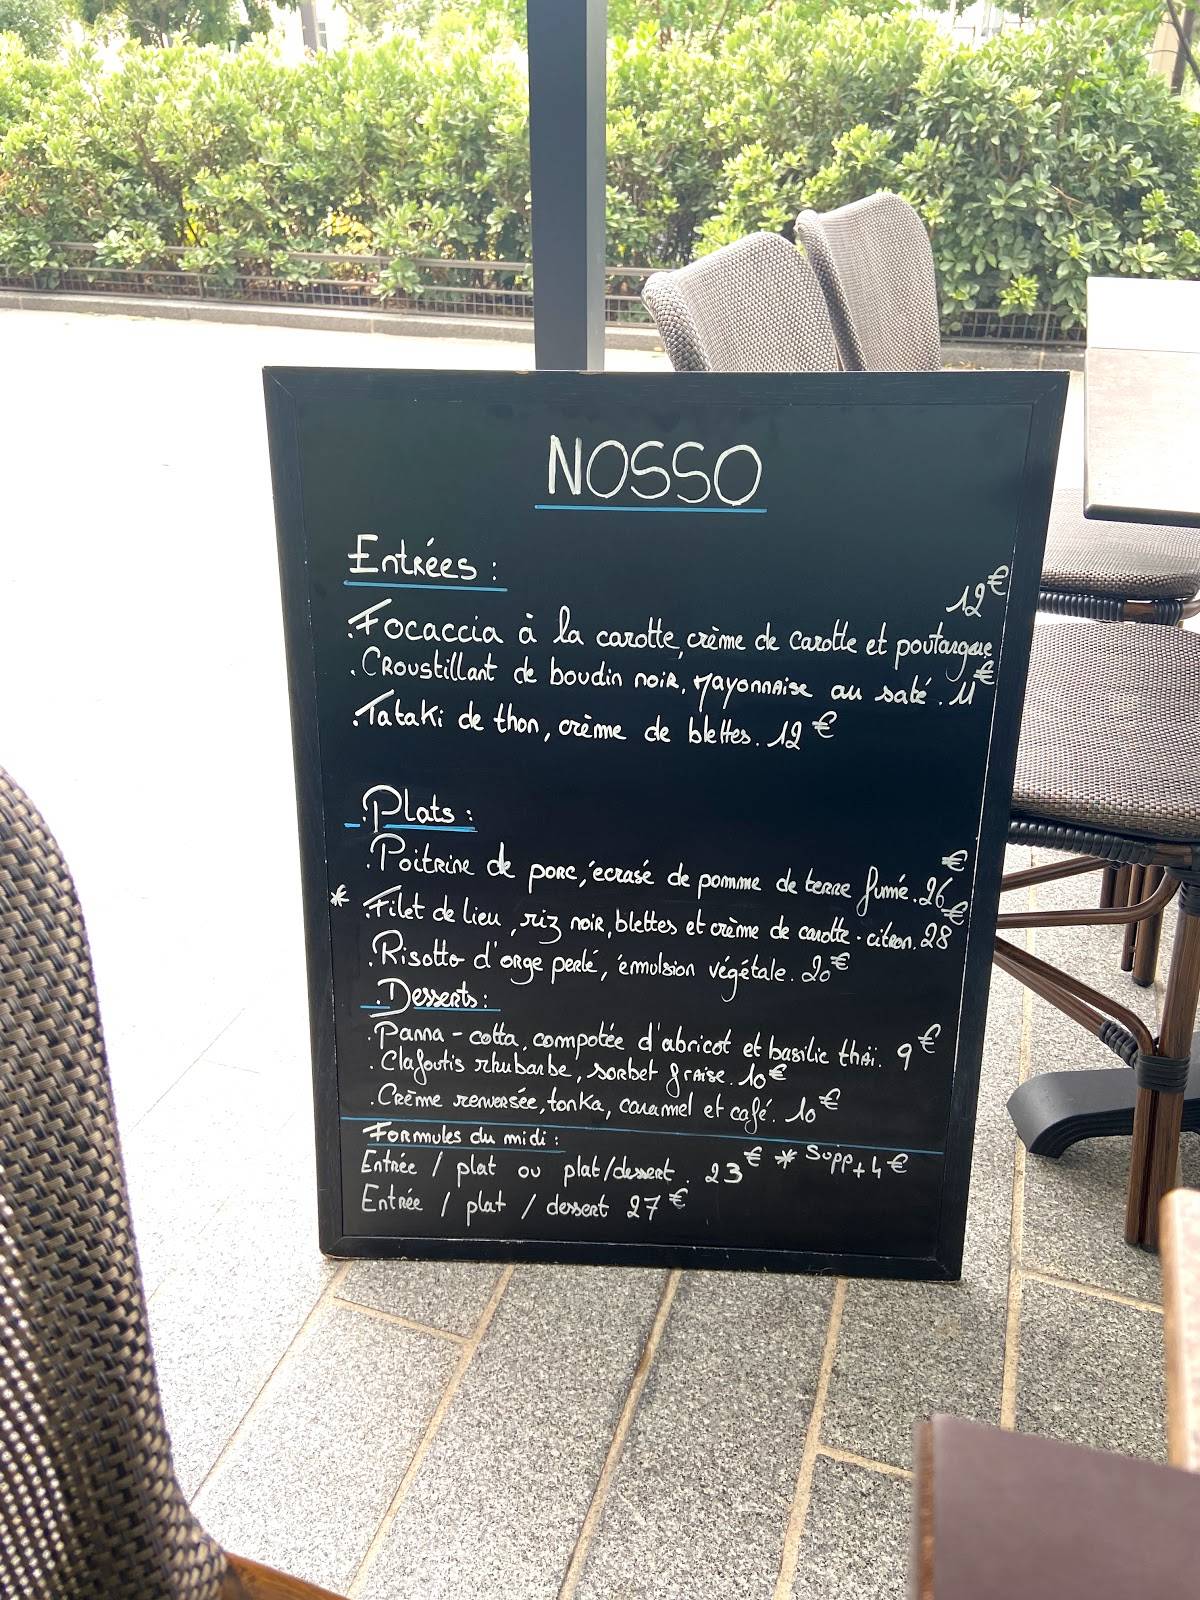 NOSSO
Entrées :
.Focaccia à la carotte, crème de carotte et poutargue 12€
.Croustillant de boudin noir, Mayonnaise au saté. 11€
.Tataki de thon, crème de blettes. 12€
.Plats :
.Poitrine de porc, écrasé de pomme de terre fumé. 26€
* .Filet de lieu, riz noir, blettes et crème de carotte - citron. 28€
.Risotto d'orge perlé, émulsion végétale. 20€
.Desserts :
.Panna-cotta, compotée d'abricot et basilic thaï. 9€
.Clafoutis rhubarbe, sorbet fraise. 10€
.Crème renversée, tonka, caramel et café. 10€
Formules du midi :
Entrée / plat ou plat/dessert. 23€ * Supp + 4€
Entrée / plat / dessert 27€